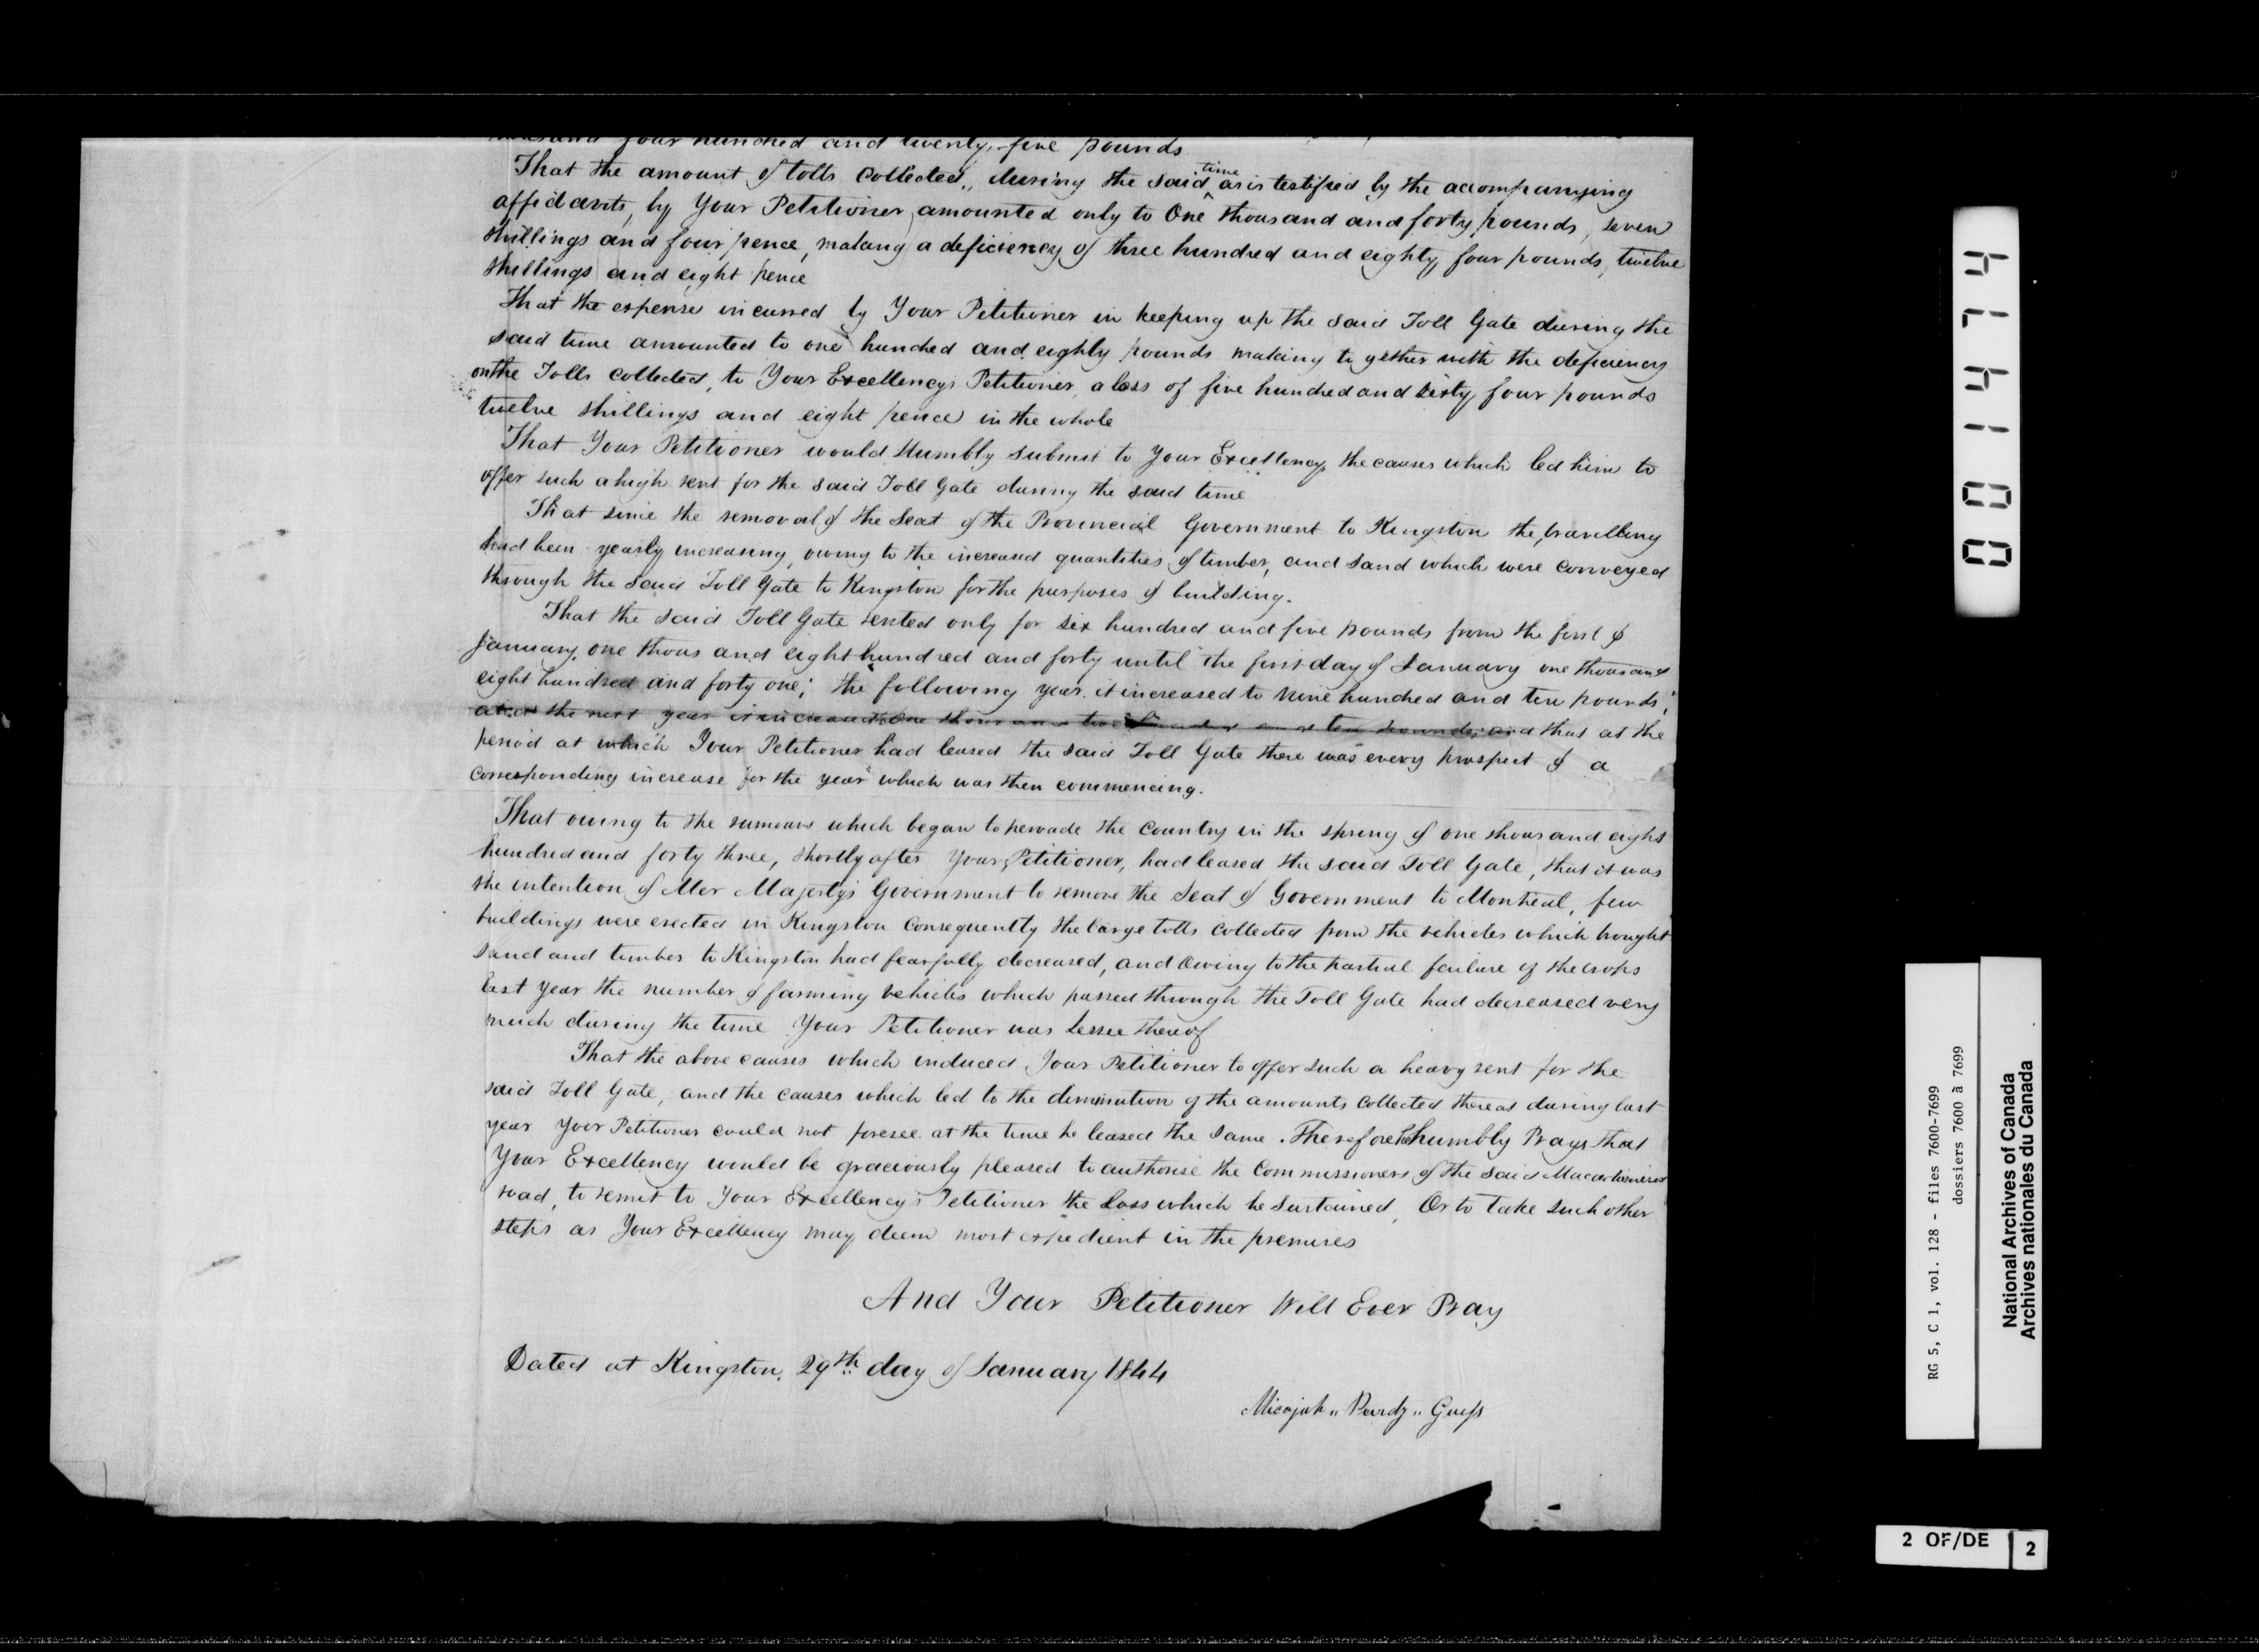 thousand four hundred and twenty, five pounds
That the amount of tolls collected,, during the said ^time as is testified by the accompanying
affidavits, by Your Petitioner, amounted only to One thousand and forty pounds, seven
shillings and four pence, making a deficiency of three hundred and eighty four pounds, twelve
shillings and eight pence
That the expense incurred by Your Petitioner in keeping up the said Toll Gate during the
said time amounted to one hundred and eighty pounds making together with the deficiency
on the Tolls collected, to Your Excellency's Petitioner, a loss of five hundred and sixty four pounds
twelve shillings and eight pence in the whole
That Your Petitioner would Humbly submit to Your Excellency, the causes which led him to
offer such a high rent for the said Toll Gate during the said time
That since the removal of the Seat of the Provincial Government to Kingston the travelling
had been yearly increasing, owing to the increased quantities of timber, and sand which were conveyed
through the said Toll Gate to Kingston for the purposes of building.
That the said Toll Gate rented only for six hundred and five pounds from the first of
January, one thousand eight hundred and forty until the first day of January one thousand
eight hundred and forty one; the following year it increased to nine hundred and ten pounds;
the next year it increased to One thousand two hundred and ten pounds; and that at the
period at which Your Petitioner had leased the said Toll Gate there was every prospect of a
corresponding increase for the year which was then commencing.
That owing to the rumours which began to pervade the Country in the spring of one thousand eight
hundred and forty three, shortly after Your Petitioner, had leased the said Toll Gate, that it was
the intention of Her Majesty's Government to remove the Seat of Government to Montreal, few
buildings were erected in Kingston consequently the large tolls collected from the vehicles which brought
sand and timber to Kingston had fearfully decreased, and owing to the partial failure of the crops
last year the number of farming vehicles which passed through the Toll Gate had decreased very
much during the time Your Petitioner was Lessee thereof
That the above causes which induced Your Petitioner to offer such a heavy rent for the
said Toll Gate, and the causes which led to the diminution of the amounts collected thereat during last
year Your Petitioner could not foresee at the time he leased the same. Therefore he humbly Prays that
Your Excellency would be graciously pleased to authorise the Commissioners of the said Macadamised
road, to remit to Your Excellency's Petitioner the Loss which he sustained, Or to take such other
steps as Your Excellency may deem most expedient in the premises
And Your Petitioner Will Ever Pray
Dated at Kingston, 29th day of January 1844
Micajah,, Purdy,, Guess
001474
RG 5, C 1, vol. 128 - files 7600-7699
dossiers 7600 à 7699
National Archives of Canada
Archives nationales du Canada
2 OF/DE 2